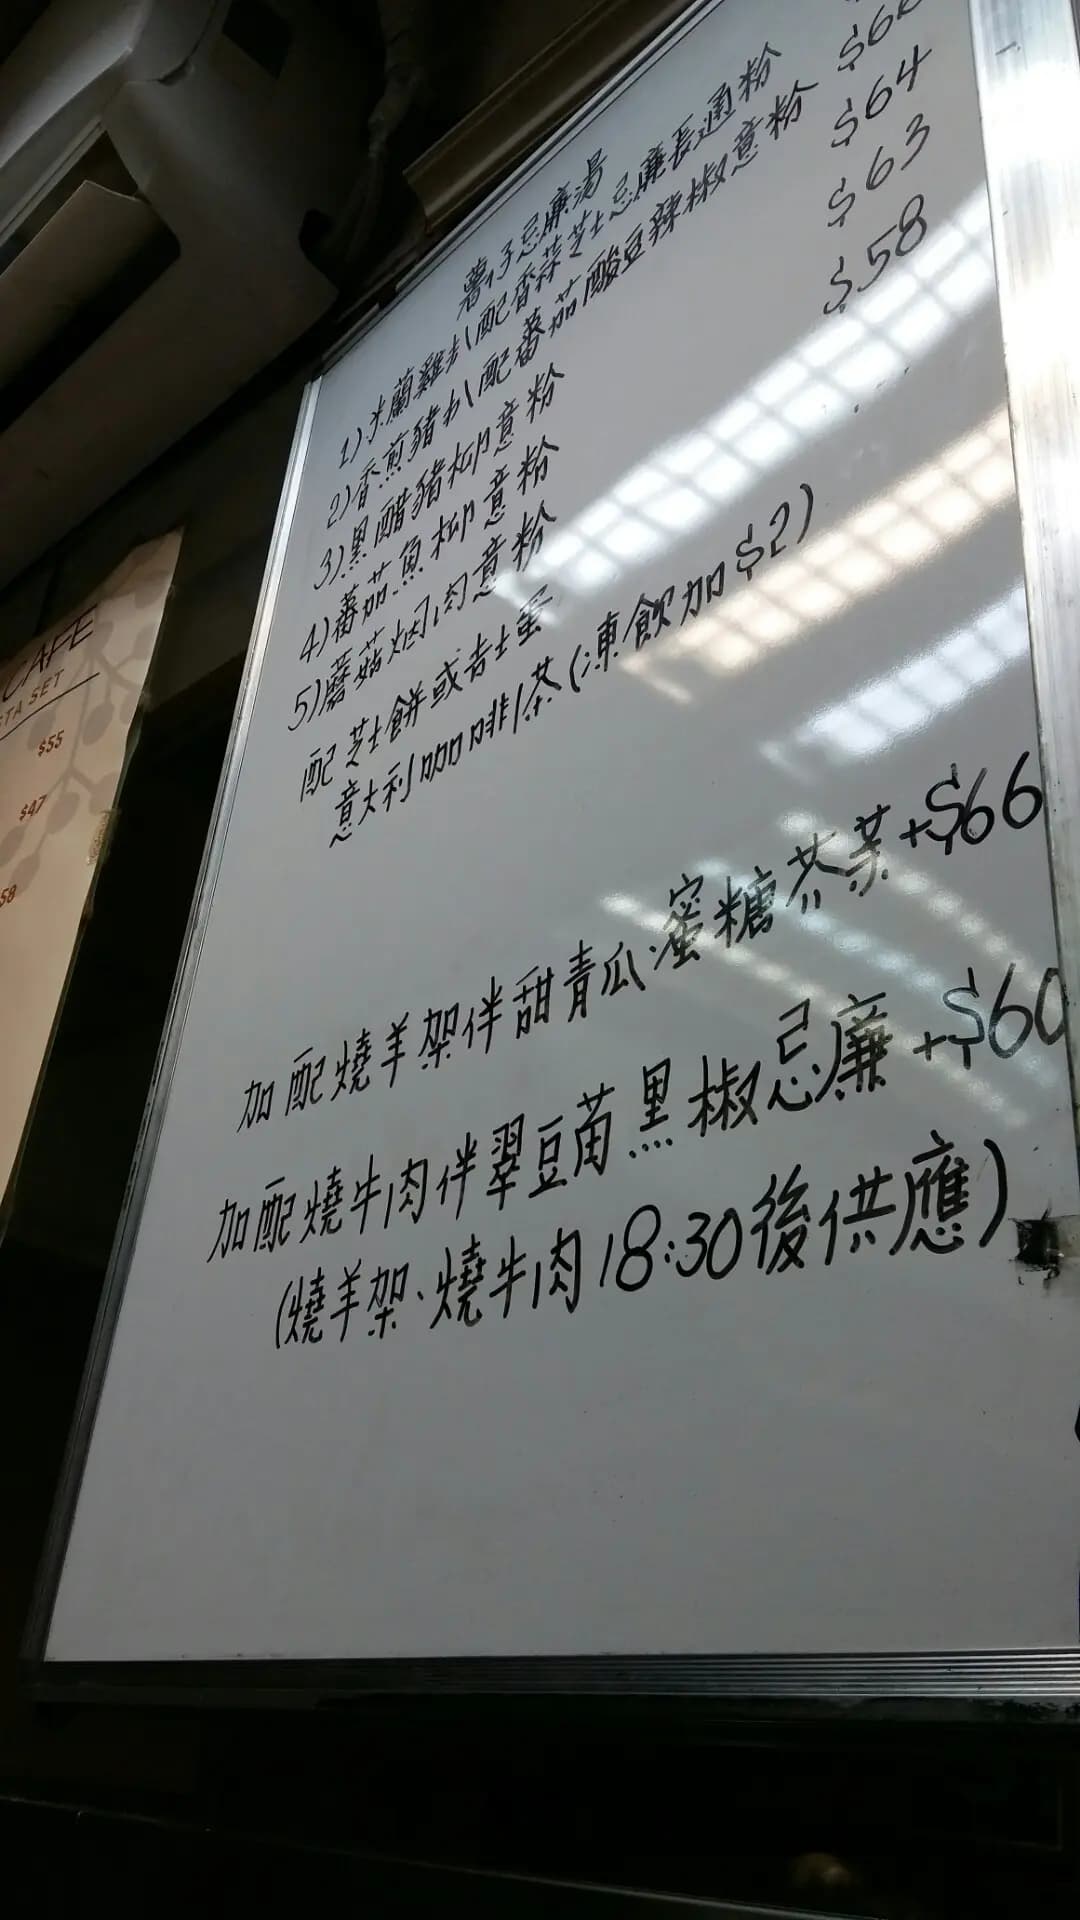 薯仔忌廉湯
1)米蘭雞扒配香蒜芝士忌廉長通粉
2)香煎豬扒配蕃茄酸豆辣椒意粉
$64
3)黑醋豬柳意粉
$63
4)蕃茄魚柳意粉
$58
5)蘑菇烟肉意粉
配芝士餅或吉士蛋
意大利咖啡/茶(凍飲加$2)
加配燒羊架伴甜青瓜蜜糖芥菜+$66
加配燒牛肉伴翠豆苗黑椒忌廉+$60
(燒羊架、燒牛肉18:30後供應)
CAFE
STA SET
$55
$47
58